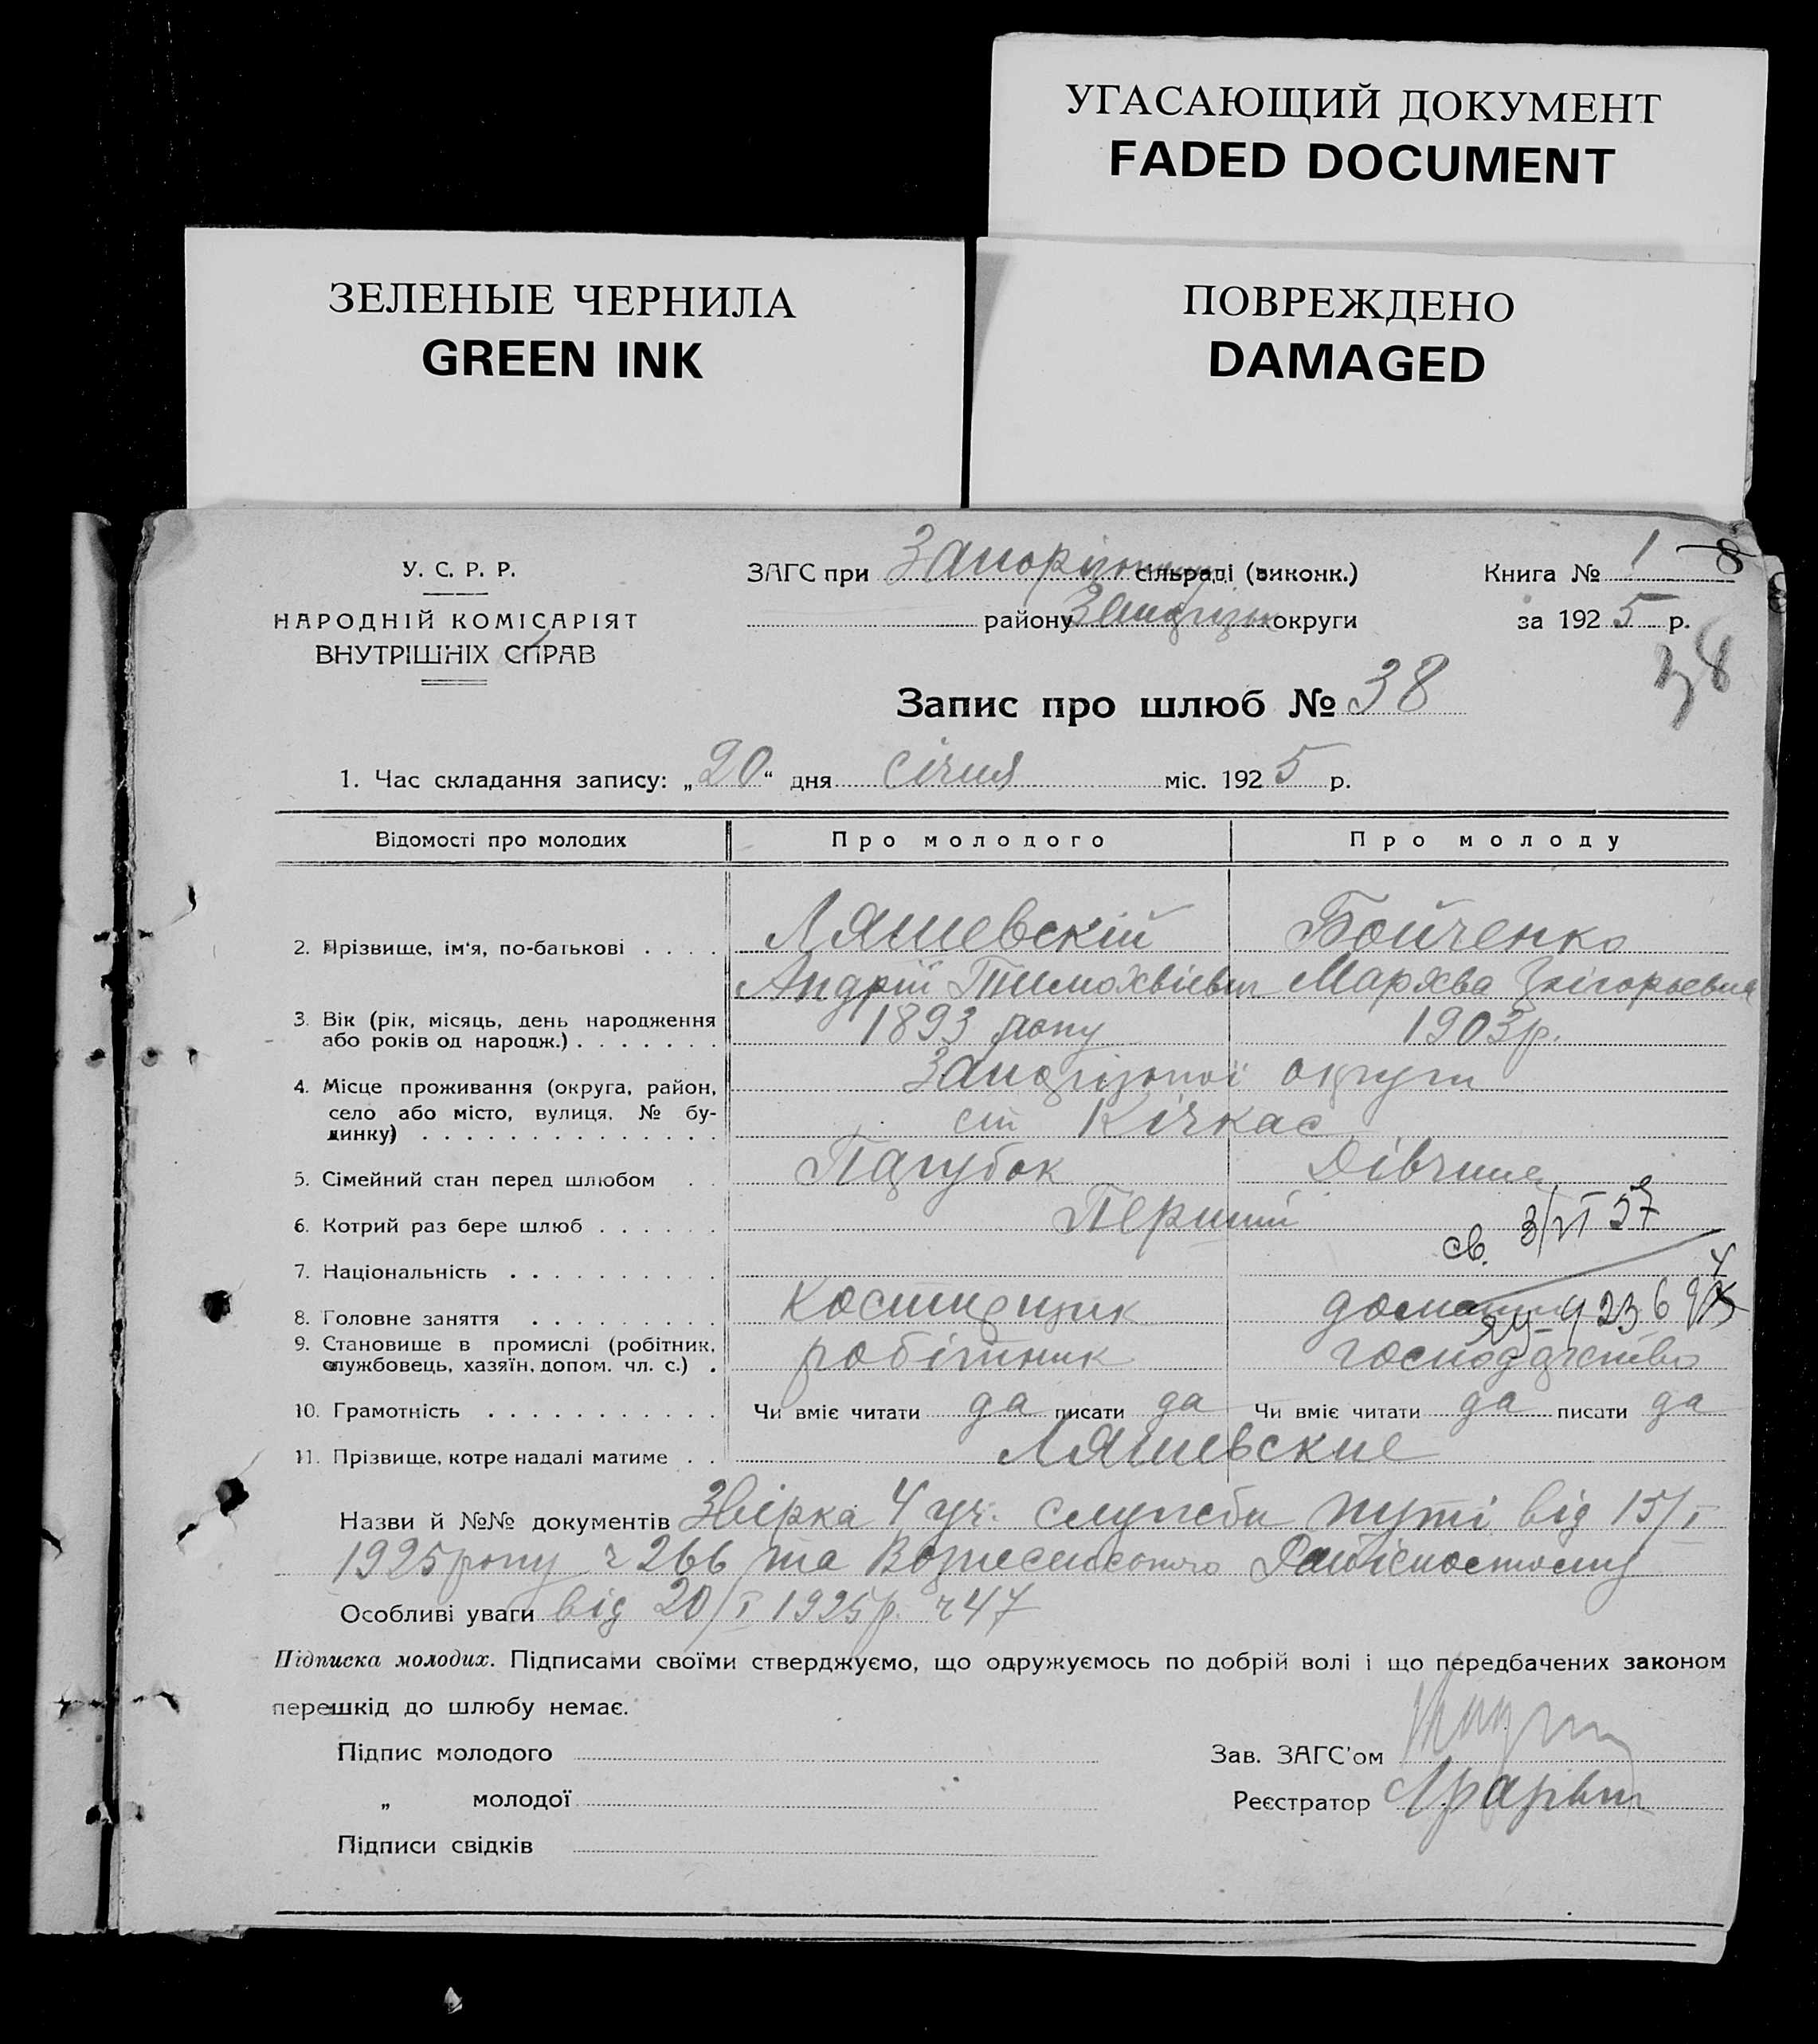 УГАСАЮЩИЙ ДОКУМЕНТ
FADED DOCUMENT
ЗЕЛЕНЫЕ ЧЕРНИЛА
GREEN INK
ПОВРЕЖДЕНО
DAMAGED
У. С. Р. Р.
НАРОДНІЙ КОМІСАРІЯТ
ВНУТРІШНІХ СПРАВ
ЗАГС при сільраді (виконк.)
району округи
Книга № 1 8
за 1925 р.
38
Запис про шлюб № 38
1. Час складання запису: „20“ дня січня міс. 1925 р.
Відомості про молодих Про молодого Про молоду
2. Прізвище, ім'я, по-батькові . . . . Ляшевскій Бойченко
Андрій Тимохвієвич Мархва Григорьевна
3. Вік (рік, місяць, день народження
або років од народж.) . . . . . . . 1893 року 1903р.
4. Місце проживання (округа, район,
село або місто, вулиця, № бу-
динку) . . . . . . . . . . . . . . Запорізької округи
ст Кічкас
5. Сімейний стан перед шлюбом . . Парубок Дівчина
6. Котрий раз бере шлюб . . . . . . Перший
св. 3/VI 57
7. Національність . . . . . . . . . .
8. Головне заняття . . . . . . . . .
9. Становище в промислі (робітник,
службовець, хазяїн, допом. чл. с.) . робітник господарство
10. Грамотність . . . . . . . . . . . Чи вміє читати да писати да Чи вміє читати да писати да
11. Прізвище, котре надалі матиме . . Ляшевские
Назви й №№ документів Звірка 4 уч. служби путі від 15/I
1925 року ч 266 та Вознесенського
Особливі уваги від 20/I 1925р. ч 47
Підписка молодих. Підписами своїми стверджуємо, що одружуємось по добрій волі і що передбачених законом
перешкід до шлюбу немає.
Підпис молодого
„ молодої
Підписи свідків
Зав. ЗАГС'ом
Реєстратор